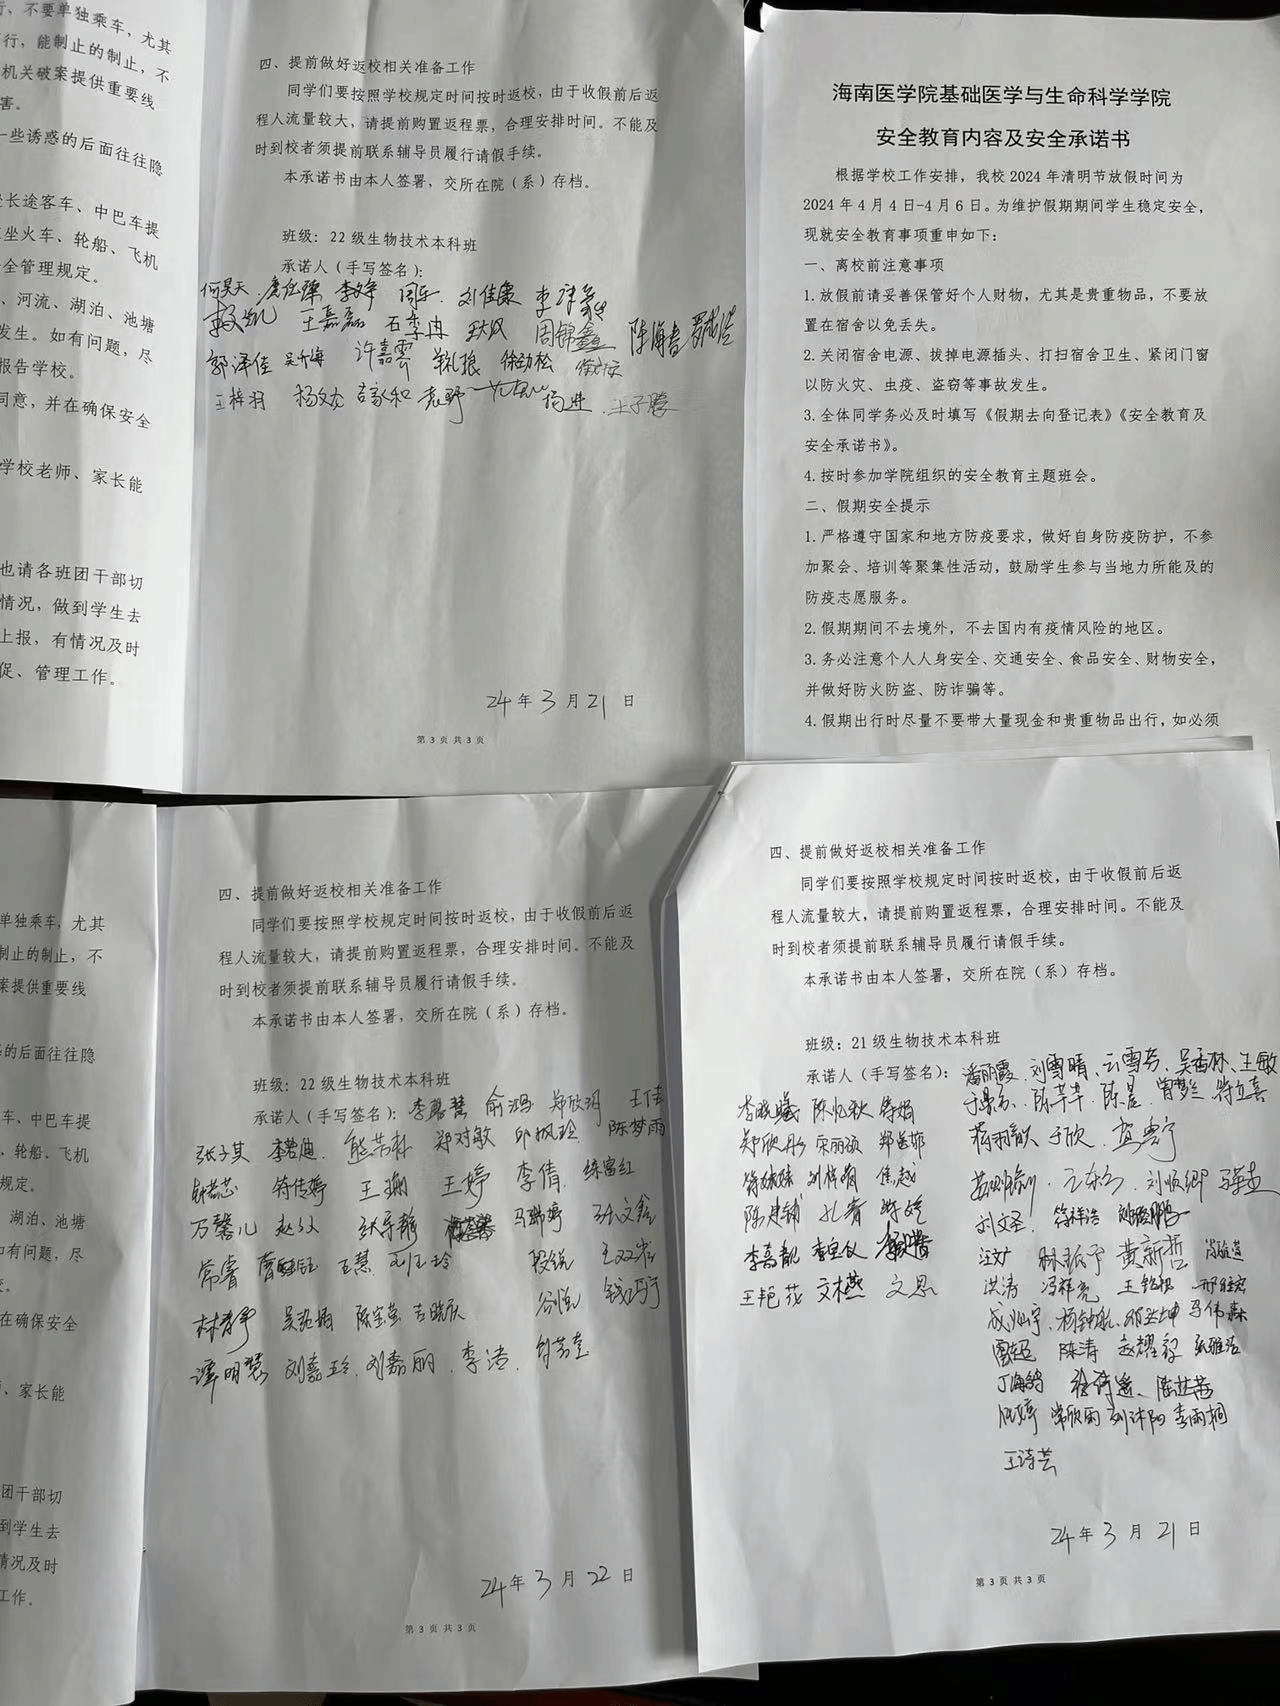 行、不要单独乘车，尤其
行，能制止的制止，不
机关破案提供重要线
害。
一些诱惑的后面往往隐
长途客车、中巴车提
坐火车、轮船、飞机
全管理规定。
、河流、湖泊、池塘
发生。如有问题，尽
报告学校。
同意，并在确保安全
学校老师、家长能
也请各班团干部切
情况，做到学生去
上报，有情况及时
促、管理工作。
四、提前做好返校相关准备工作
同学们要按照学校规定时间按时返校，由于收假前后返
程人流量较大，请提前购置返程票，合理安排时间。不能及
时到校者须提前联系辅导员履行请假手续。
本承诺书由本人签署，交所在院（系）存档。
班级：22级生物技术本科班
承诺人（手写签名）：
何昊天 刘佳豪
王嘉磊 石李冉 周锦鑫 陈海春
郭泽佳 许嘉雲 徐劲松
王梓羽 杨文龙 吉家和 袁野 杨进 王子腾
24年3月21日
第3页共3页
海南医学院基础医学与生命科学学院
安全教育内容及安全承诺书
根据学校工作安排，我校2024年清明节放假时间为
2024年4月4日-4月6日。为维护假期期间学生稳定安全，
现就安全教育事项重申如下：
一、离校前注意事项
1.放假前请妥善保管好个人财物，尤其是贵重物品，不要放
置在宿舍以免丢失。
2.关闭宿舍电源、拔掉电源插头、打扫宿舍卫生、紧闭门窗
以防火灾、虫疫、盗窃等事故发生。
3.全体同学务必及时填写《假期去向登记表》《安全教育及
安全承诺书》。
4.按时参加学院组织的安全教育主题班会。
二、假期安全提示
1.严格遵守国家和地方防疫要求，做好自身防疫防护，不参
加聚会、培训等聚集性活动，鼓励学生参与当地力所能及的
防疫志愿服务。
2.假期期间不去境外，不去国内有疫情风险的地区。
3.务必注意个人人身安全、交通安全、食品安全、财物安全，
并做好防火防盗、防诈骗等。
4.假期出行时尽量不要带大量现金和贵重物品出行，如必须
单独乘车，尤其
制止的制止，不
案提供重要线
的后面往往隐
车、中巴车提
、轮船、飞机
规定。
湖泊、池塘
如有问题，尽
在确保安全
、家长能
团干部切
到学生去
情况及时
工作。
四、提前做好返校相关准备工作
同学们要按照学校规定时间按时返校，由于收假前后返
程人流量较大，请提前购置返程票，合理安排时间。不能及
时到校者须提前联系辅导员履行请假手续。
本承诺书由本人签署，交所在院（系）存档。
班级：22级生物技术本科班
承诺人（手写签名）： 俞鸿 郑欣玥 王佳
张子其 李若迪 熊芳朴 郑对敏 邱枫玲 陈梦雨
符传婷 王珊 王婷 李倩 练富红
万馨儿 马瑞婷 张文鑫
常睿 王慧
林春宇 陈宝莹 吉晓欣
谭明慧 刘嘉玲 刘嘉丽 李洁
24年3月22日
第3页共3页
四、提前做好返校相关准备工作
同学们要按照学校规定时间按时返校，由于收假前后返
程人流量较大，请提前购置返程票，合理安排时间。不能及
时到校者须提前联系辅导员履行请假手续。
本承诺书由本人签署，交所在院（系）存档。
班级：21级生物技术本科班
承诺人（手写签名）：潘丽霞、刘雪晴、云雪芬、吴香林、王敏
李晓曦 陈忆秋 符娟 陈芊芊、陈昱、曾梦兰 符立喜
郑欣彤 宋丽颖 蒋羽歆 于欣
刘梓萌 焦越 刘顺卿
陈建铺 孔青 刘文圣 符祥浩
李高靓 汪文广 林振予 黄新哲
王艳茂 文木燕 文思 洪涛 冯祥亮
杨钟航 马伟森
陈涛 赵耀毅 张雅洁
丁海鸥 徐诗遥
常欣雨 刘沐阳 李雨桐
王诗芸
24年3月21日
第3页共3页